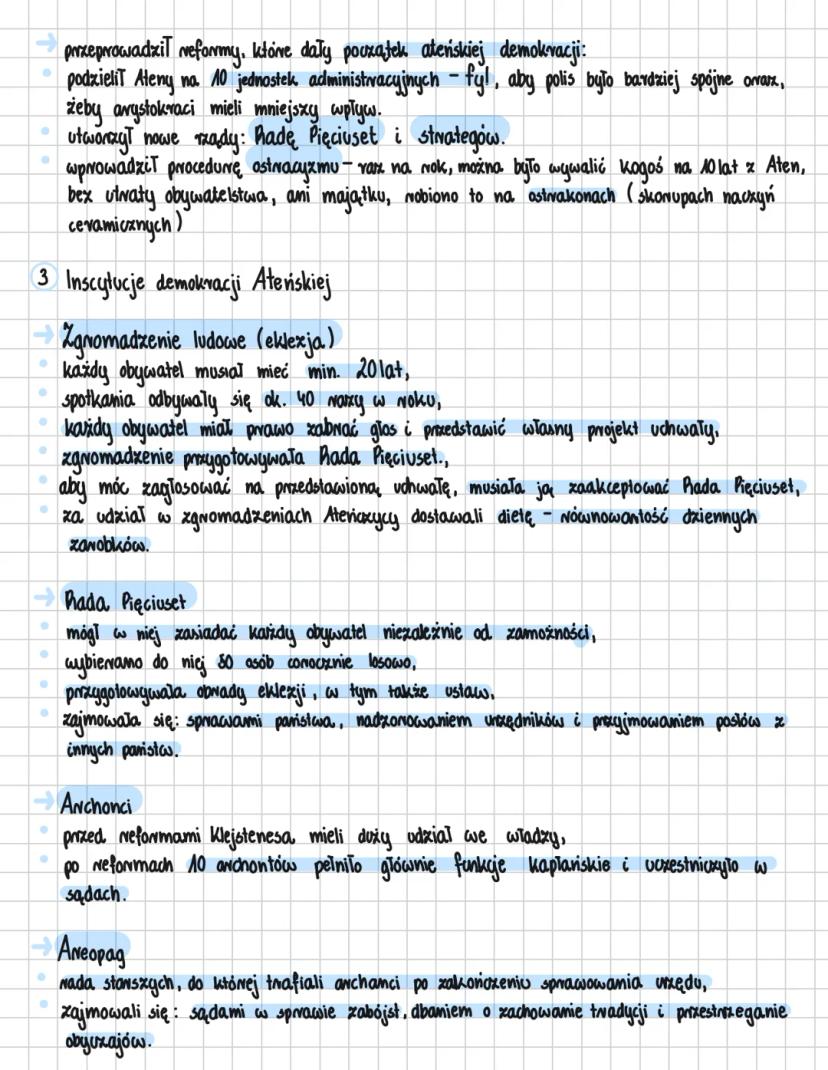 → przeprowadził reformy, które dały początek ateńskiej demokracji:
• podzielił Ateny na 10 jednostek administracyjnych – fyl, aby polis było bardziej spójne oraz,
żeby arystokraci mieli mniejszy wpływ.
• utworzył nowe rządy: Radę Pięciuset i strategów.
• wprowadził procedurę ostracyzmu – raz na rok, można było wywalić kogoś na 10 lat z Aten,
bez utraty obywatelstwa, ani majątku, robiono to na ostrakonach (skorupach naczyń
ceramicznych)
3 Inscytucje demokracji Ateńskiej
→ Zgromadzenie ludowe (eklezja)
• każdy obywatel musiał mieć min. 20 lat,
• spotkania odbywały się ok. 40 razy w roku,
• każdy obywatel miał prawo zabrać głos i przedstawić własny projekt uchwały,
• zgromadzenie przygotowywała Rada Pięciuset.,
• aby móc zagłosować na przedstawioną uchwałę, musiała ją zaakceptować Rada Pięciuset,
• za udział w zgromadzeniach Ateńczycy dostawali dietę – równowartość dziennych
zarobków.
→ Rada Pięciuset
• mógł w niej zasiadać każdy obywatel niezależnie od zamożności,
• wybierano do niej 50 osób corocznie losowo,
• przygotowywała obrady eklezji, w tym także ustaw,
• zajmowała się: sprawami państwa, nadzorowaniem urzędników i przyjmowaniem posłów z
innych państw.
→ Archonci
• przed reformami Klejstenesa mieli duży udział we władzy,
• po reformach 10 archontów pełniło głównie funkcje kapłańskie i uczestniczyło w
sądach.
→ Areopag
• rada starszych, do której trafiali archanci po zakończeniu sprawowania urzędu,
• zajmowali się: sądami w sprawie zabójst, dbaniem o zachowanie tradycji i przestrzeganie
obyczajów.